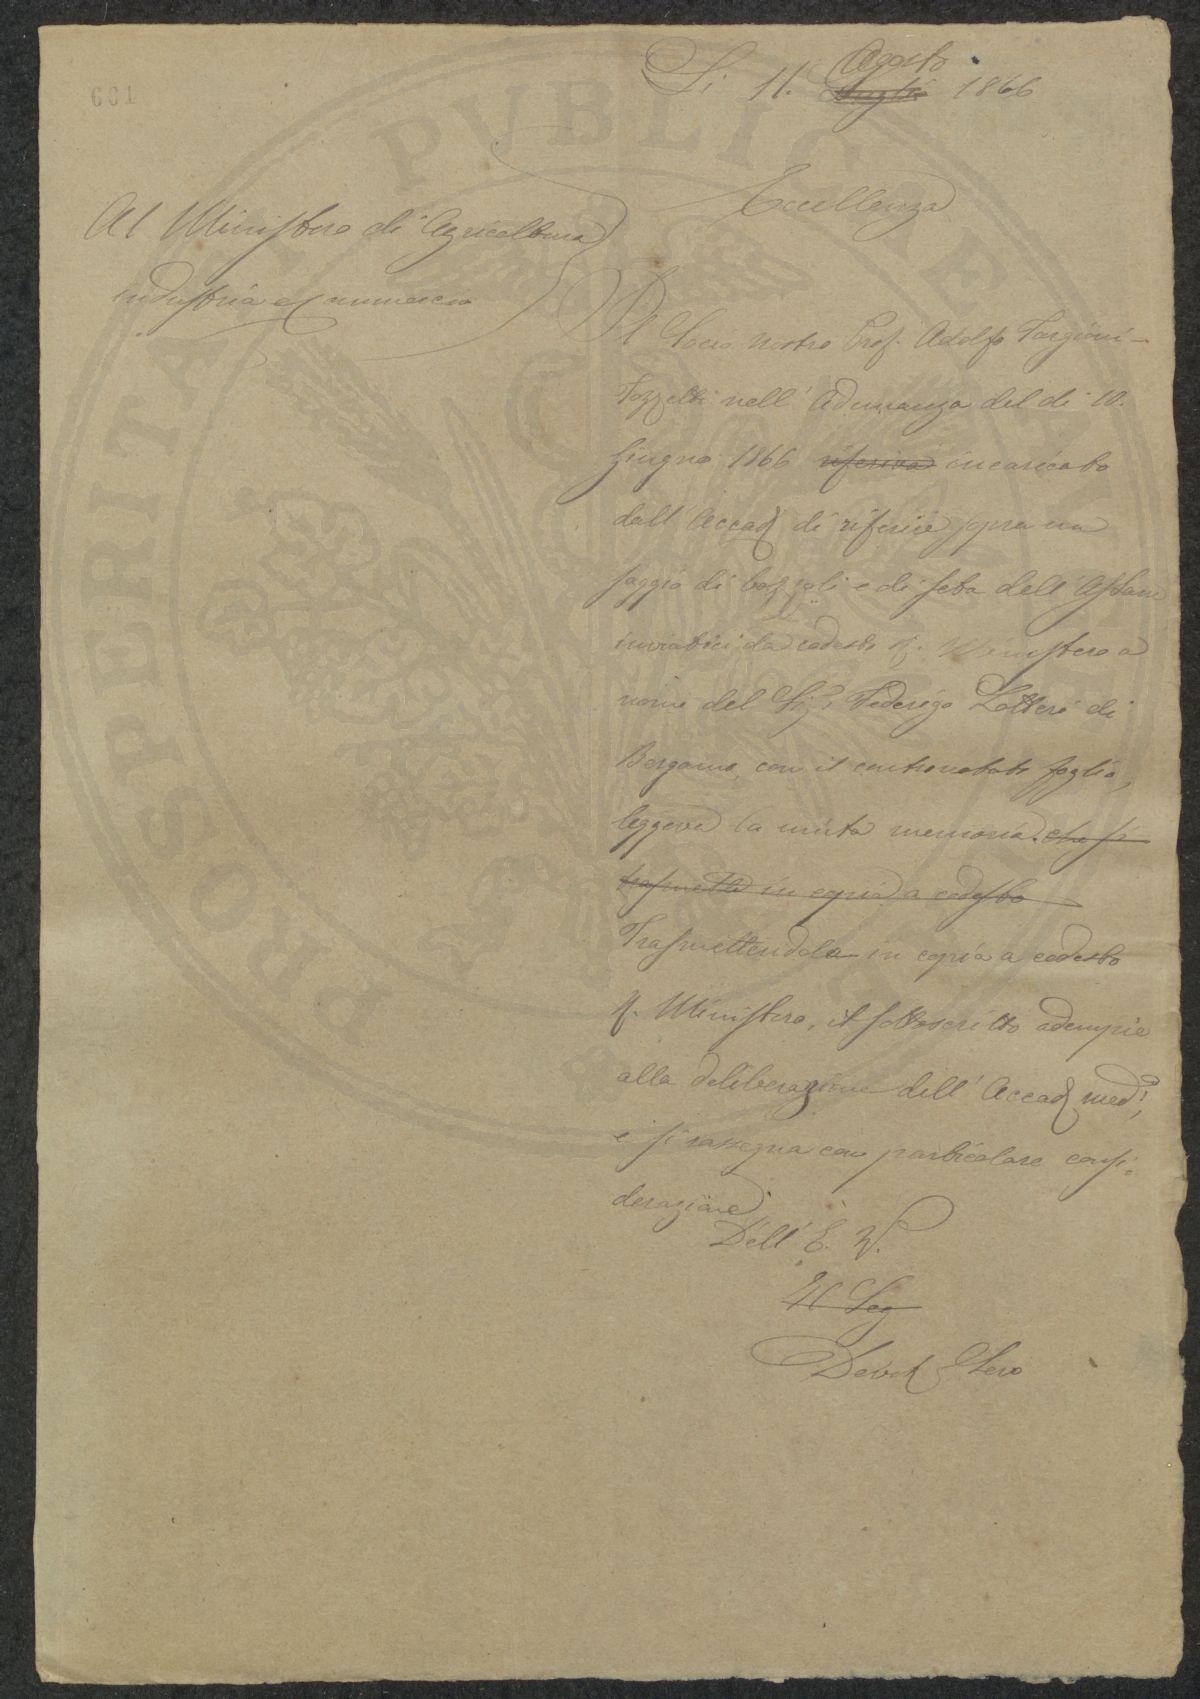 601
Li 11. Agosto Luglio 1866
Al Ministero di Agricoltura
industria e Commercio
Eccellenza
Il Socio nostro Prof. Adolfo Targioni-
Tozzetti nell' Adunanza del dì 10.
Giugno 1866 riferiva incaricato
dall' Accad di riferire sopra un
saggio di bozzoli e di seta dell' Aylanto
inviatici da codesto R. Ministero a
nome del Sig.r Federigo Lotteri di
Bergamo, con il contronotato foglio,
leggeva la unita memoria. che si
trasmette in copia a codesto
Trasmettendola in copia a codesto
R. Ministero, il sottoscritto adempie
alla deliberazione dell' Accad med.a,
e si rassegna con particolare consi-
derazione
Dell' E. V.
Il Seg
Devot
PROSPERITATI PUBLICAE